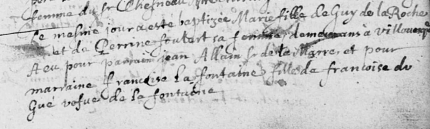 homme du sr Chesneau
Le mesme jour a esté baptizée Marie fille de Guy de la Roche
et de Perrine foubert sa femme demeurans a villoue
A eu pour parrain jean Allain sr de la Marre et pour
marraine françoise La fontaine fille de francoise du
Gue vefve de la fontaine